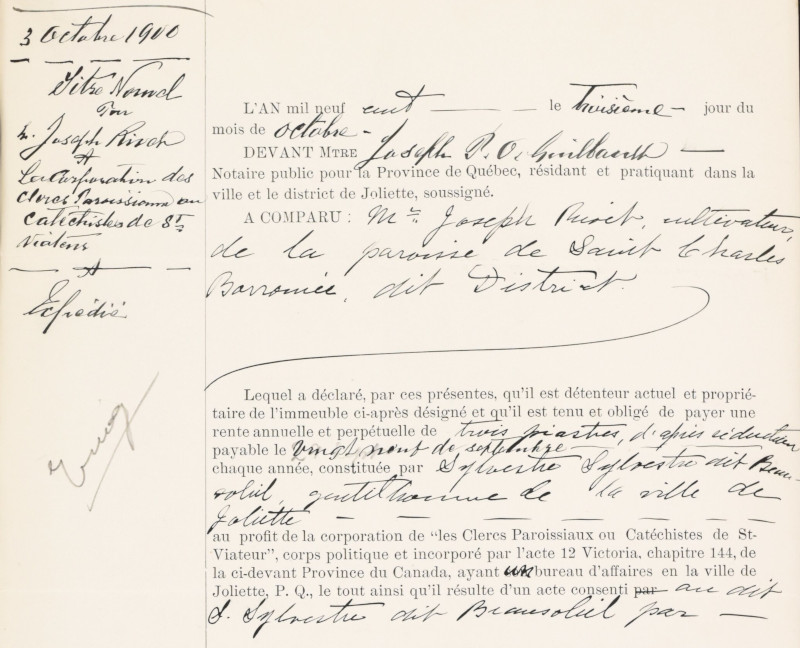 3 Octobre 1900
Titre Nouvel
Par
M. Joseph Rivet
A
La Corporation des
Clercs Paroissiaux ou
Catéchistes de St
Viateur
Expédié
L'AN mil neuf cent — le troisième — jour du
mois de octobre -
DEVANT MTRE Joseph P. O. Guilbault —
Notaire public pour la Province de Québec, résidant et pratiquant dans la
ville et le district de Joliette, soussigné.
A COMPARU : Mr. Joseph Rivet, cultivateur,
de la paroisse de Saint Charles
Borromée, dit District.
Lequel a déclaré, par ces présentes, qu'il est détenteur actuel et proprié-
taire de l'immeuble ci-après désigné et qu'il est tenu et obligé de payer une
rente annuelle et perpétuelle de trois piastres, d'après réduction
payable le vingt neuf de septembre
chaque année, constituée par Sylvestre Sylvestre dit Beau-
soleil, gentilhomme de la ville de
Joliette — — — — — — —
au profit de la corporation de “les Clercs Paroissiaux ou Catéchistes de St-
Viateur”, corps politique et incorporé par l'acte 12 Victoria, chapitre 144, de
la ci-devant Province du Canada, ayant un bureau d'affaires en la ville de
Joliette, P. Q., le tout ainsi qu'il résulte d'un acte consenti par au dit
S. Sylvestre dit Beausoleil par —